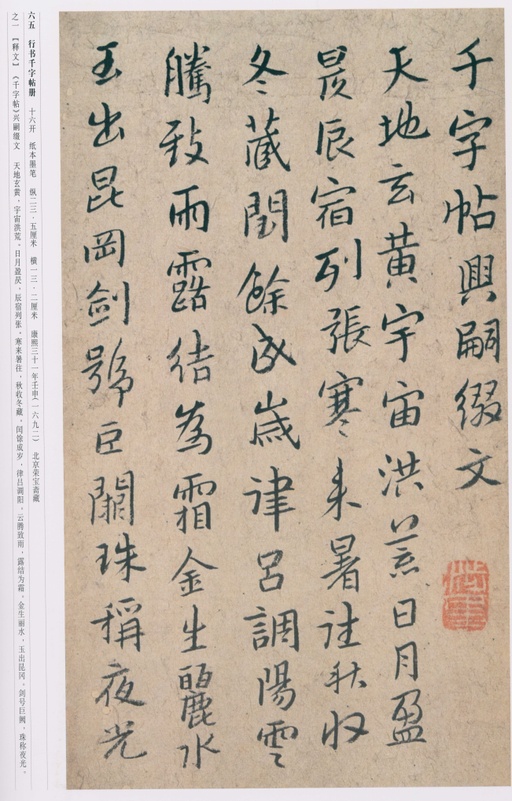 千字帖興嗣缀文
天地玄黄宇宙洪荒日月盈
昃辰宿列張寒来暑往秋收
冬藏閏餘成歲律吕調陽雲
騰致雨露结為霜金生麗水
玉出昆岡劍號巨闕珠稱夜光
六五 行书千字帖册 十六开 纸本墨笔 纵二三·五厘米 横一三·二厘米 康熙三十一年壬申(一六九二) 北京荣宝斋藏
之一 【释文】《千字帖》兴嗣缀文 天地玄黄，宇宙洪荒。日月盈昃，辰宿列张。寒来暑往，秋收冬藏，闰馀成岁，律吕调阳。云腾致雨，露结为霜。金生丽水，玉出昆冈。剑号巨阙，珠称夜光。